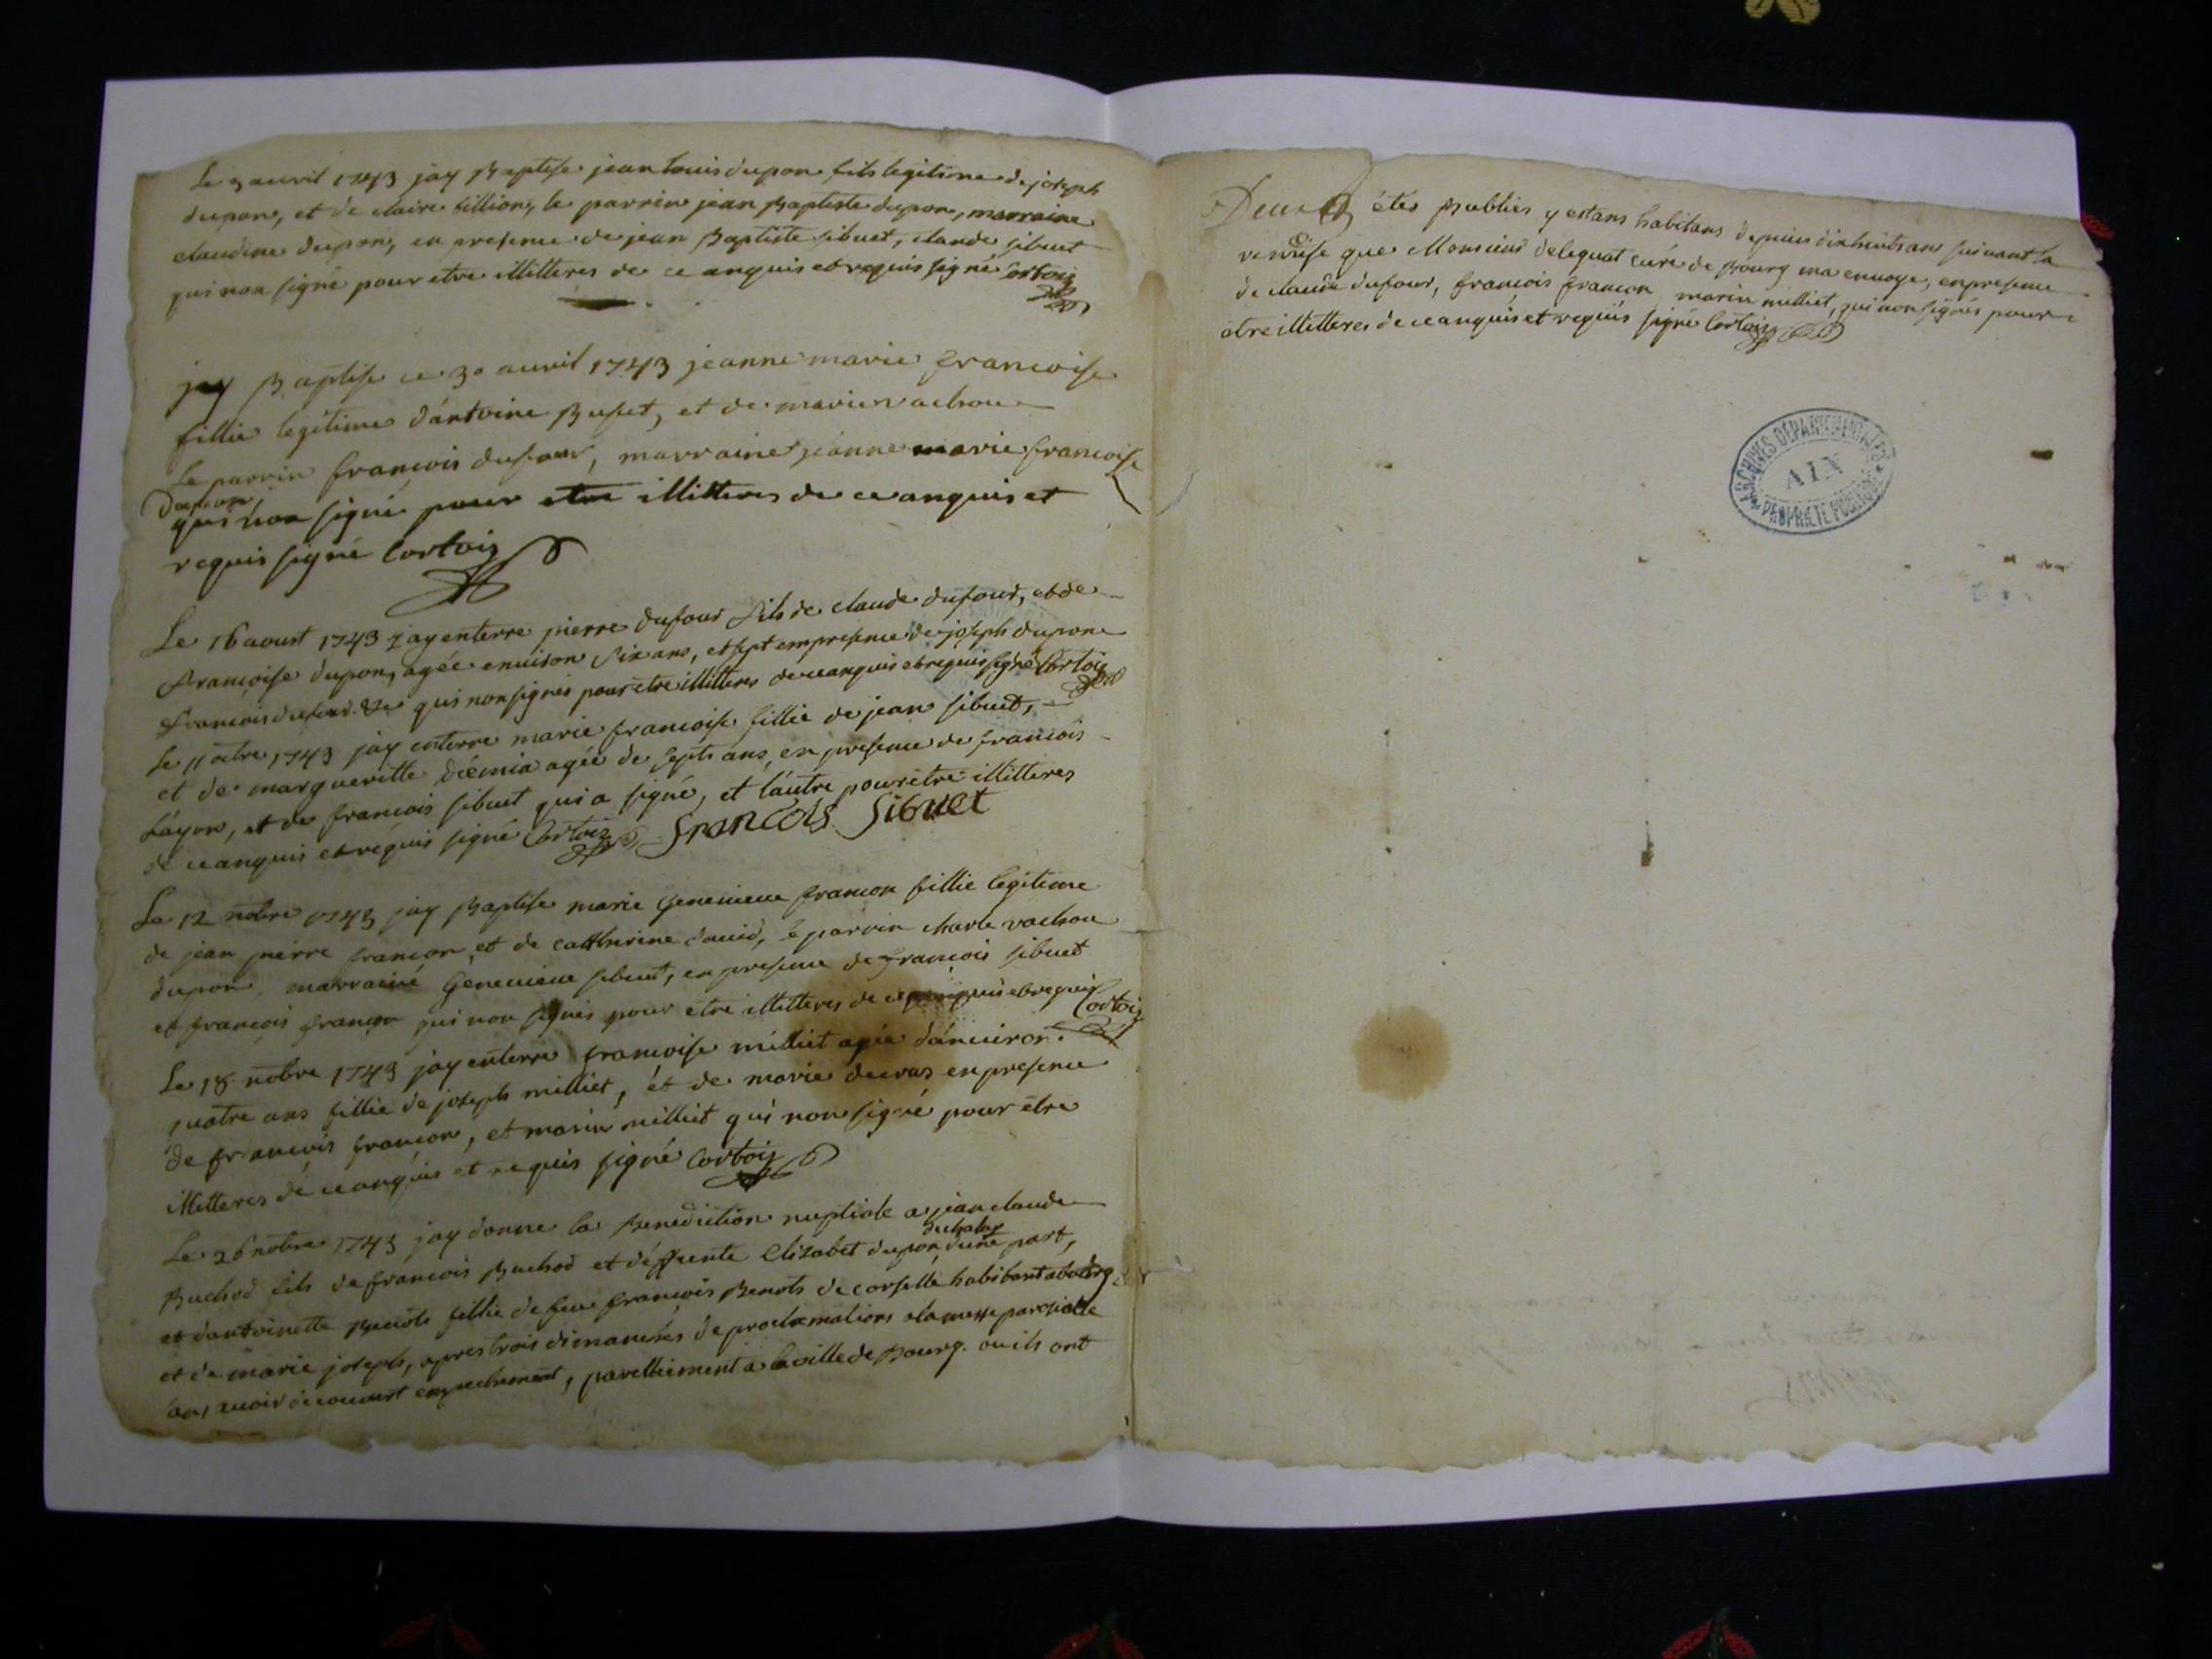 Le 3 auvril 1743 jay Baptise jean louis dupon fils legitime de joseph
dupon, et de claire billion, le parrin jean Baptiste dupon, marraine
claudine dupon, en presence de jean Baptiste sibuet, claude sibuet
qui non signé pour etre illitteres de ce anquis et requis signé Cortois
jay Baptise ce 30 auvril 1743 jeanne marie francoise
fillie legitime d'antoine Busset, et de marie vachou
Le parrin francois dufour, marraine jeanne marie francoise
Dupon,
qui non signé pour etre illitteres de ce anquis et
requis signé Cortois
Le 16 aoust 1743 jay enterre pierre dufour fils de claude dufour, et de
francoise dupon, agée enuison six ans, et sept empresence de joseph dupon
francois dufour qui non signés pour etre illitteres de ceanquis et requis signé Cortois
Le 11 octre 1743 jay enterre marie francoise fillie de jean sibuet,
et de marguerite agée de septs ans, en presence de francois
et de francois sibuet qui a signé, et l'autre pour être illitteres
de ceanquis et réquis signé Cortois francois sibuet
Le 12 nobre 1743 jay Baptise marie Geneuieue francon fillie legitime
de jean pierre francon, et de catthurine dauid, le parrin charle vachou
dupon, marrainé Geneuieue sibuet, en presence de francois sibuet
et francois francon qui non signés pour etre illitteres de ce anquis et requis Cortois
Le 18 nobre 1743 jay enterre francoise milliet agée d'anuiron
quatre ans fillie de joseph milliet, et de marie ducras en presence
de francois francon, et marin milliet qui non signé pour etre
illitteres de ceanquis et requis signé Cortois
Le 26 nobre 1743 jay donne la Benediction nuptiale a jean claude
Buchod fils de francois Buchod et déffuente Elizabet dupon, dune part,
et dantoinette Benots fillie de feu francois Benots de corselle habitant abourg
et de marie joseph, apres trois dimanches de proclamations a la messe parroialle
sans auoir decouuert empechement, pareilliement a la ville de Bourg. ou ils ont
étés Publiés y estans habitans depuis dixhuits ans suivant la
que Monsieur delequat curé de Bourg ma enuoye, en presence
de claude dufour, francois francon marin milliet, qui non signés pour
etre illitteres de ceanquis et requis signé Cortois
ARCHIVES DEPARTEMENTALES
AIN
PROPRIETE PUBLIQUE